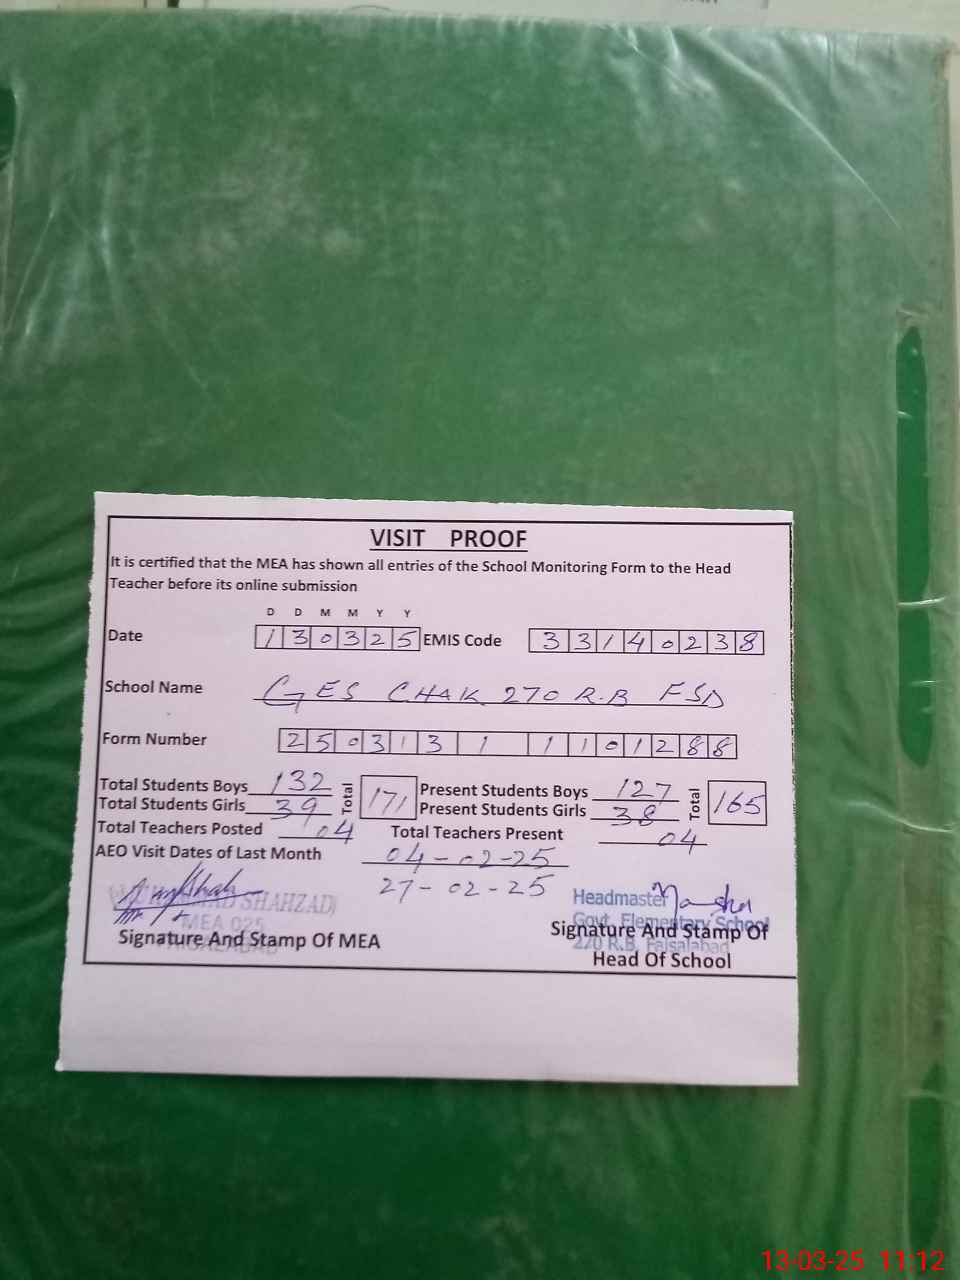 VISIT PROOF
It is certified that the MEA has shown all entries of the School Monitoring Form to the Head
Teacher before its online submission
D D M M Y Y
Date 130325 EMIS Code 33140238
School Name GES CHAK 270 R.B FSD
Form Number 25031311101288
Total Students Boys 132 Total 171 Present Students Boys 127 Total 165
Total Students Girls 39 Present Students Girls 38
Total Teachers Posted 04 Total Teachers Present 04
AEO Visit Dates of Last Month 04-02-25
27-02-25
SHAHZAD
MEA 025
Signature And Stamp Of MEA
Headmaster
Govt. Elementary School
270 R.B. Faisalabad
Signature And Stamp Of
Head Of School
13-03-25 11:12